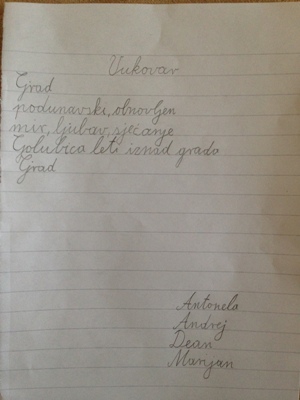 Vukovar
Grad
podunavski, obnovljen
mir, ljubav, sjećanje
Golubica leti iznad grada
Grad
Antonela
Andrej
Dean
Marijan